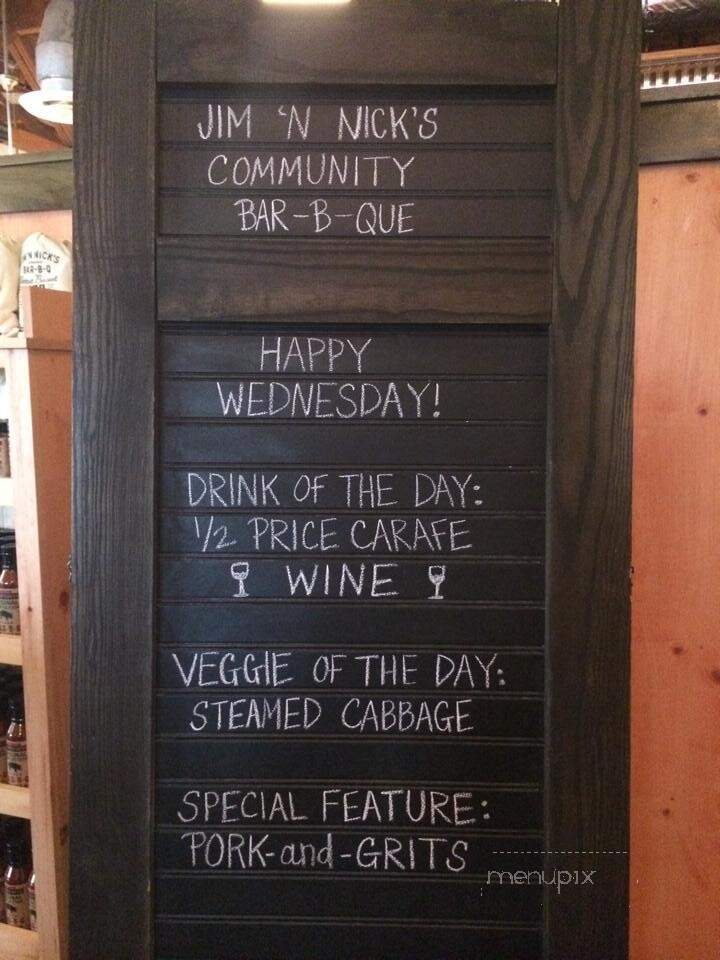 JIM 'N NICK'S
COMMUNITY
BAR-B-QUE
'N NICK'S
BAR-B-Q
HAPPY
WEDNESDAY!
DRINK OF THE DAY:
1/2 PRICE CARAFE
WINE
VEGGIE OF THE DAY:
STEAMED CABBAGE
SPECIAL FEATURE:
PORK-and-GRITS
menupix